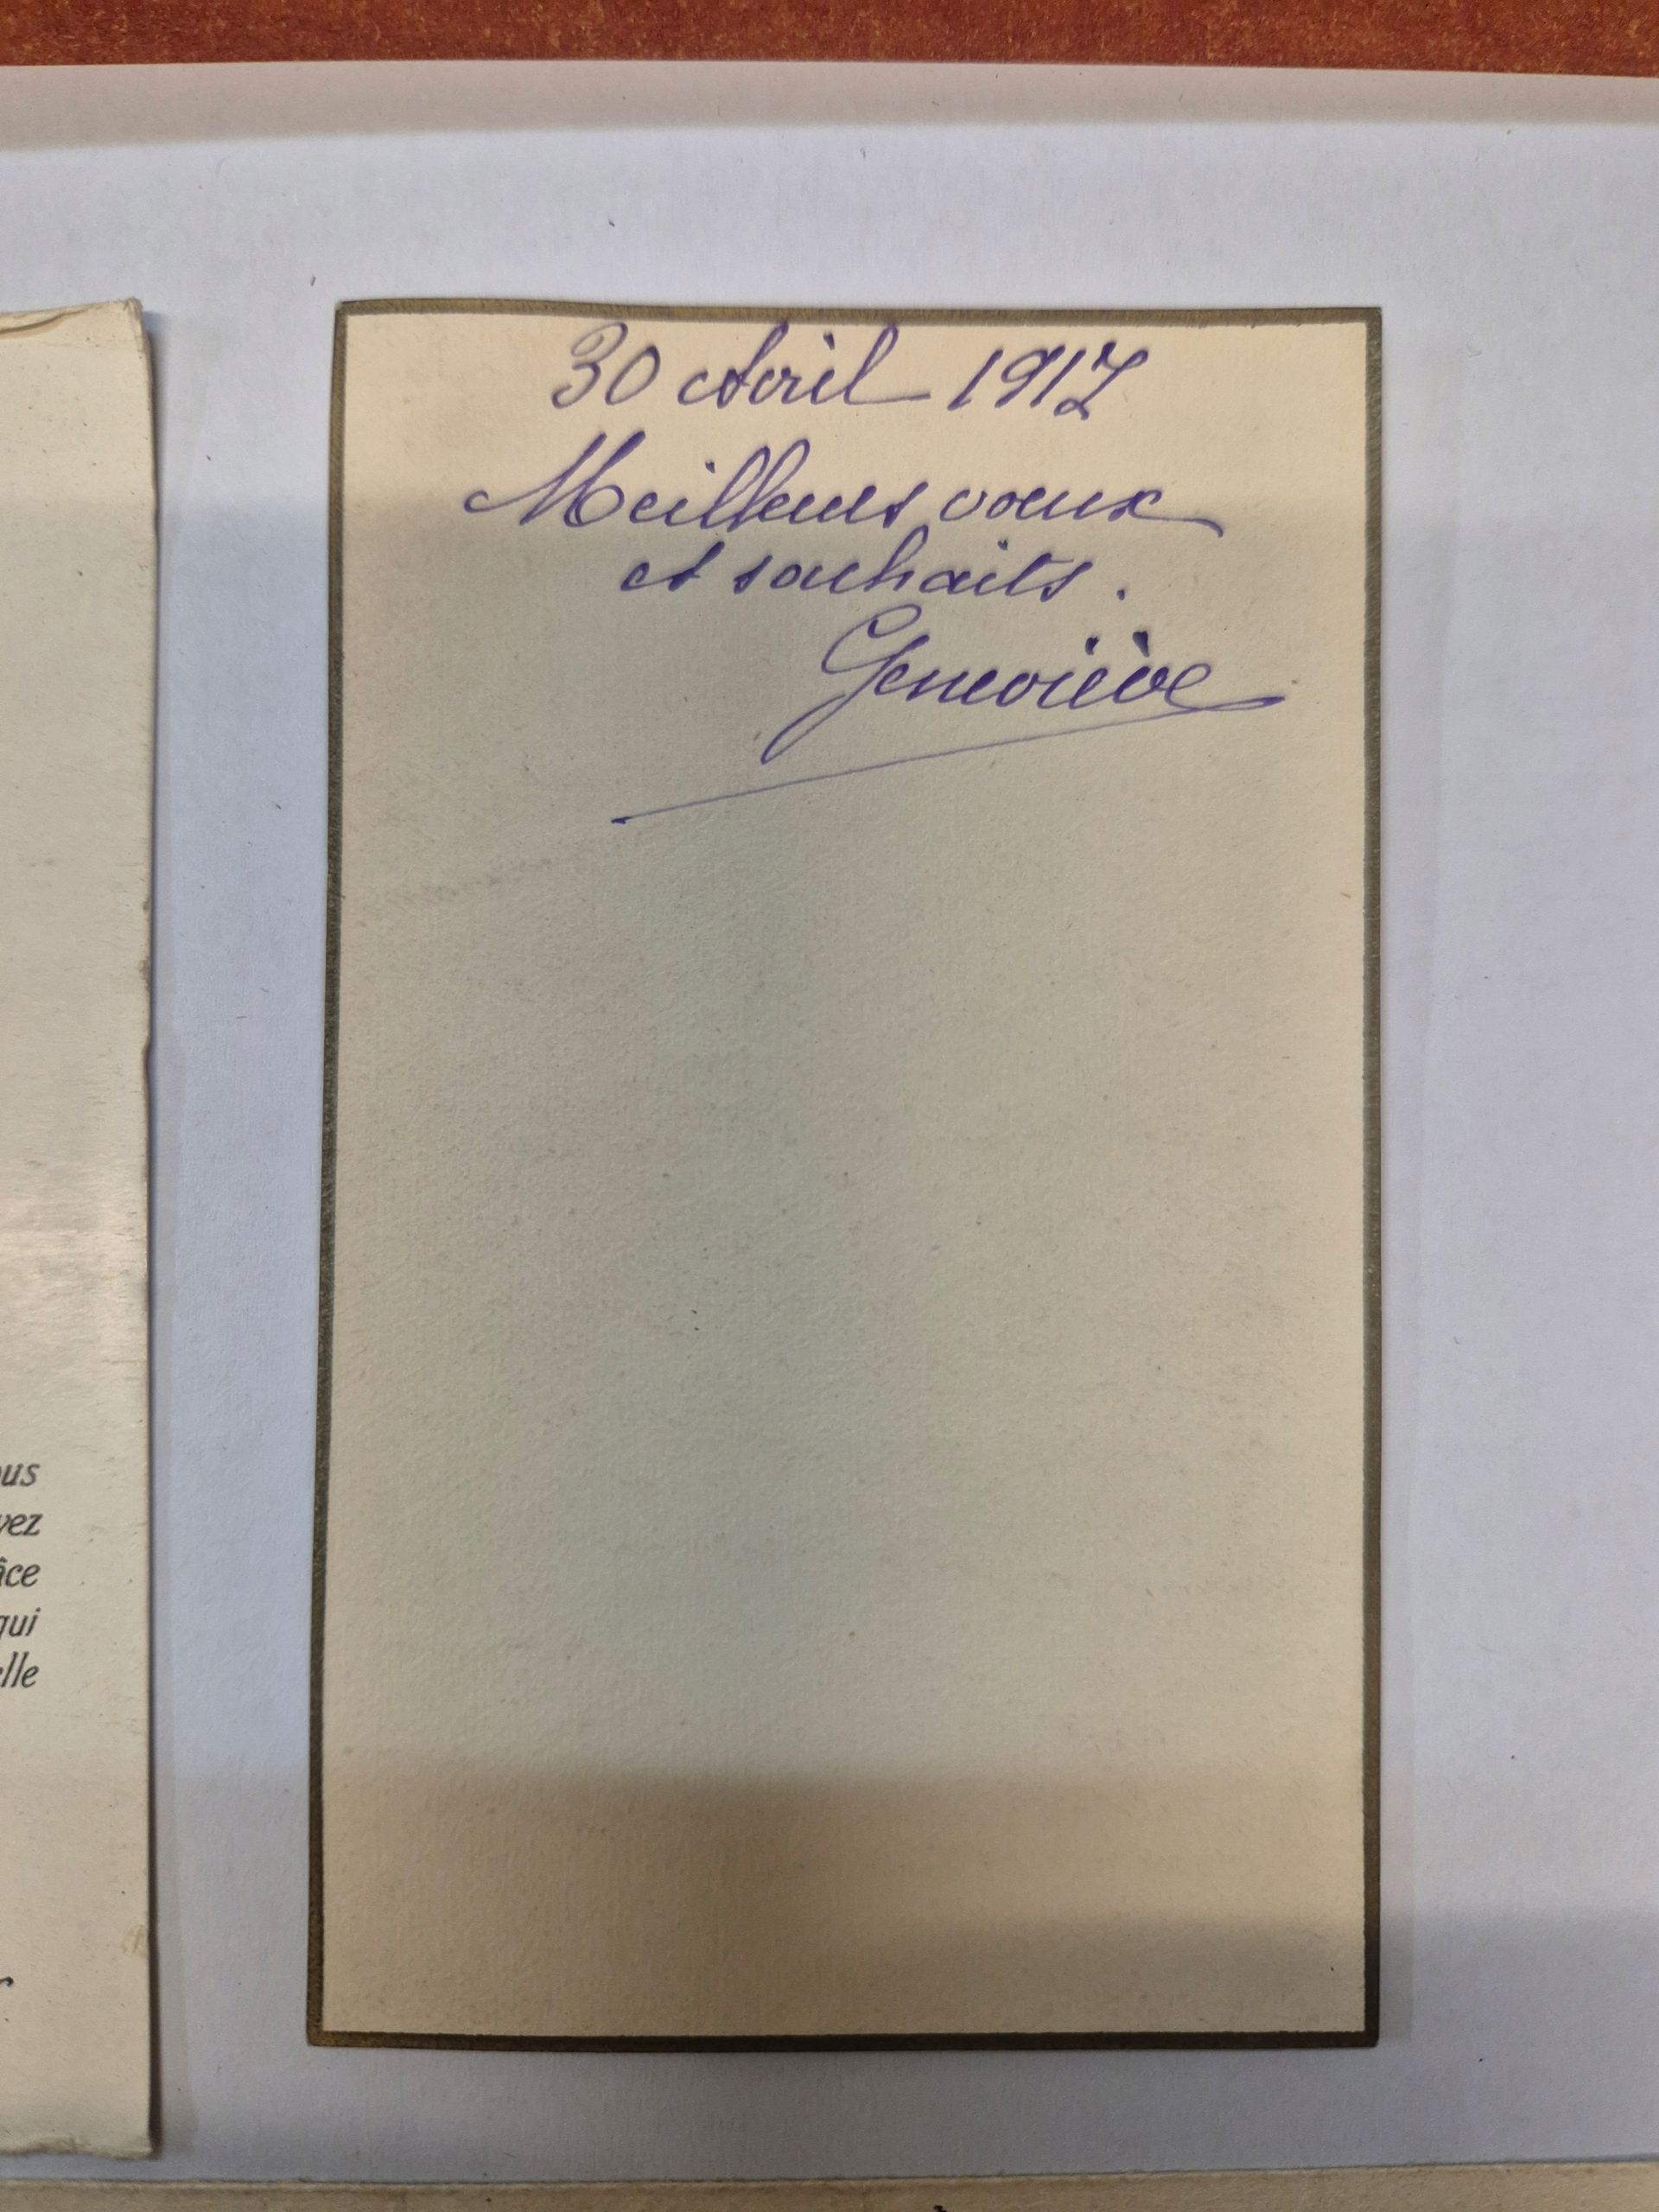 30 Avril 1917
Meilleurs voeux
et souhaits.
Geneviève
ous
vez
âce
qui
elle